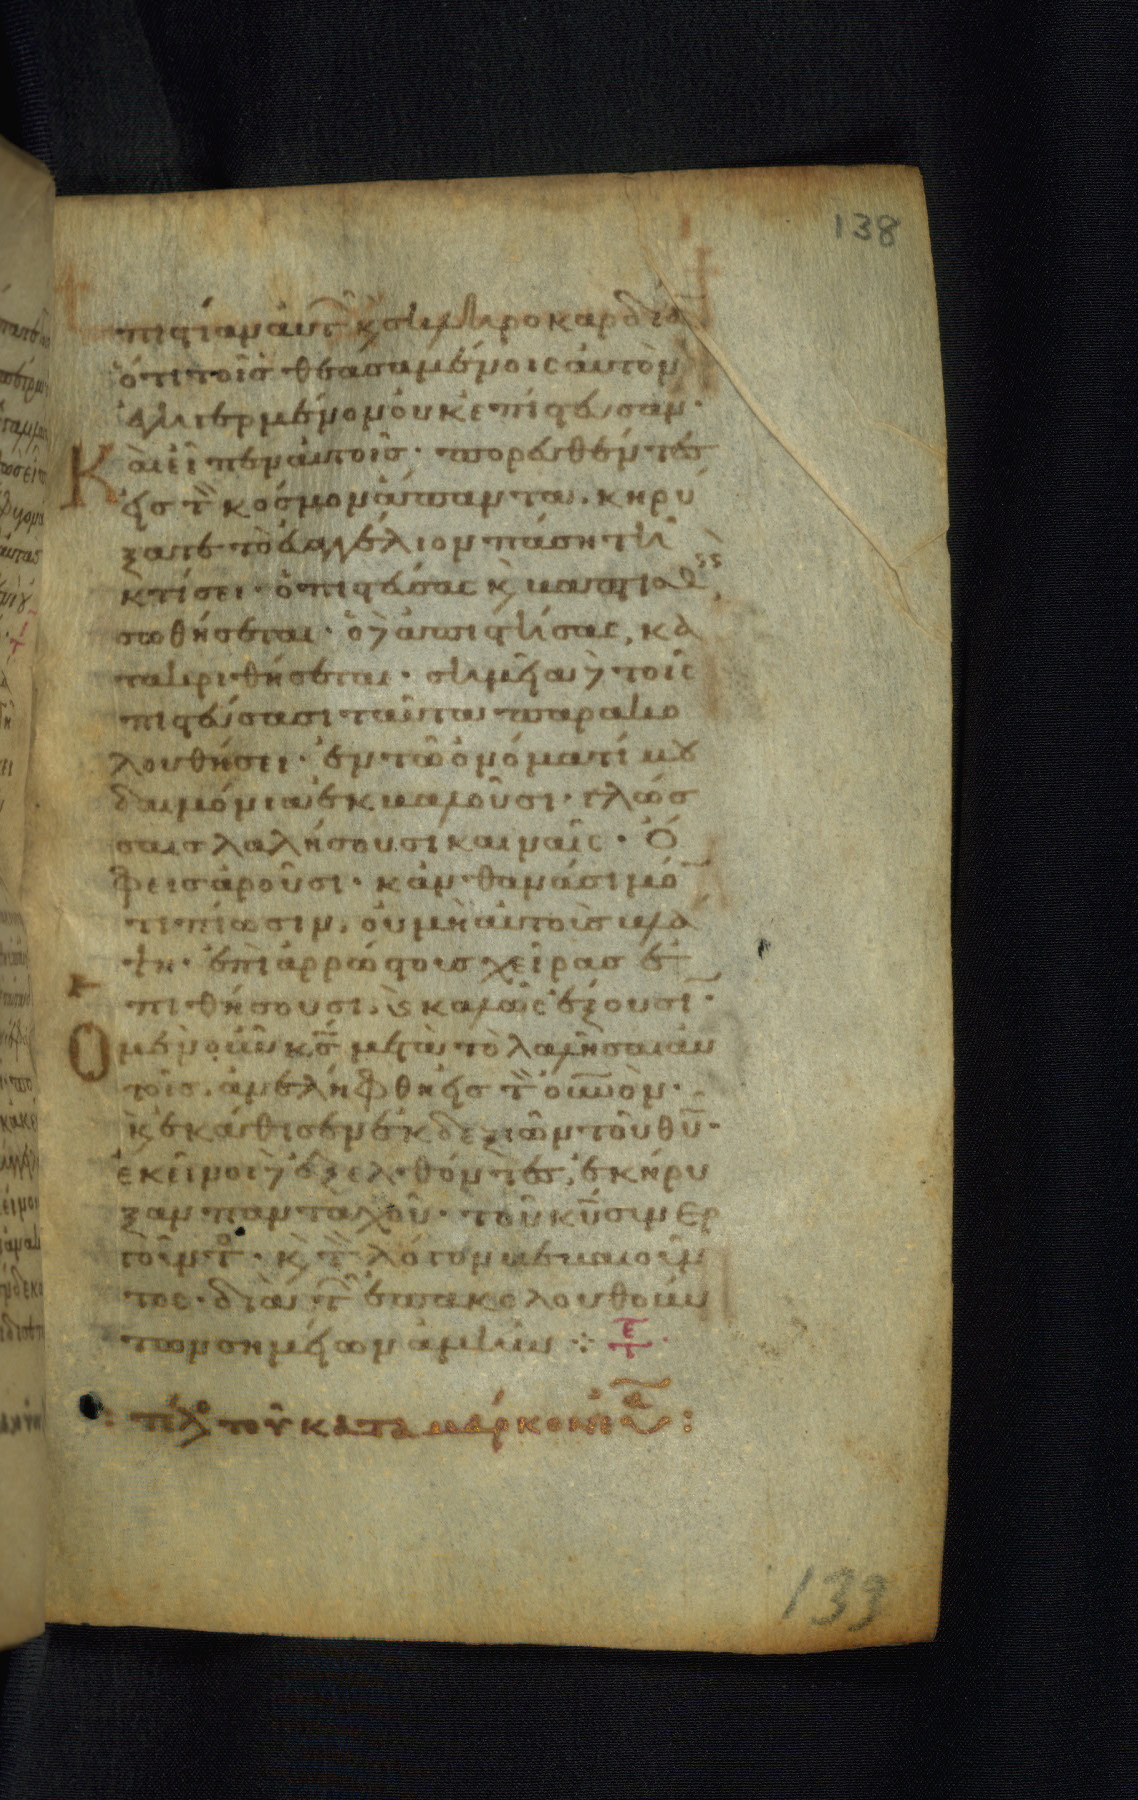 138
πιστίαν αὐτῶν κ(αὶ) σκληροκαρδίαν
ὅτι τοῖς θεασαμένοις αὐτὸν
ἐγηγερμένον οὐκ ἐπίστευσαν·
Καὶ εἶπεν αὐτοῖς· πορευθέντες
εἰς τὸν κόσμον ἅπαντα, κηρύ
ξατε τὸ εὐαγγέλιον πάσῃ τῇ
κτίσει· ὁ πιστεύσας κ(αὶ) βαπτισθεὶς,
σωθήσεται· ὁ δὲ ἀπιστήσας, κα
τακριθήσεται· σημεῖα δὲ τοῖς
πιστεύσασι ταῦτα παρακο
λουθήσει· ἐν τῶ ὀνόματί μου
δαιμόνια ἐκβαλοῦσι· γλώσ
σαις λαλήσουσι καιναῖς· ὄ
φεις ἀροῦσι· κἂν θανάσιμόν
τι πίωσιν, οὐ μὴ αὐτοὺς βλά
ψη· ἐπὶ ἀρρώστους χεῖρας ἐ
πιθήσουσι, κ(αὶ) καλῶς ἕξουσιν·
Ὁ μὲν οὖν κ̅ς̅ μετὰ τὸ λαλῆσαι αὐ
τοῖς, ἀνελήφθη εἰς τὸν οὐνὸν·
κ(αὶ) ἐκάθισεν ἐκ δεξιῶν τοῦ θ̅υ̅·
ἐκεῖνοι δὲ ἐξελθόντες, ἐκήρυ
ξαν πανταχοῦ· τοῦ κ̅υ̅ συνερ
γοῦντος· κ(αὶ) τὸν λόγον βεβαιοῦν
τος· διὰ τῶν ἐπακολουθούν
των σημείων ἀμήν ⁘ τε
: τέλος τοῦ κατὰ μάρκον εὐα :
133